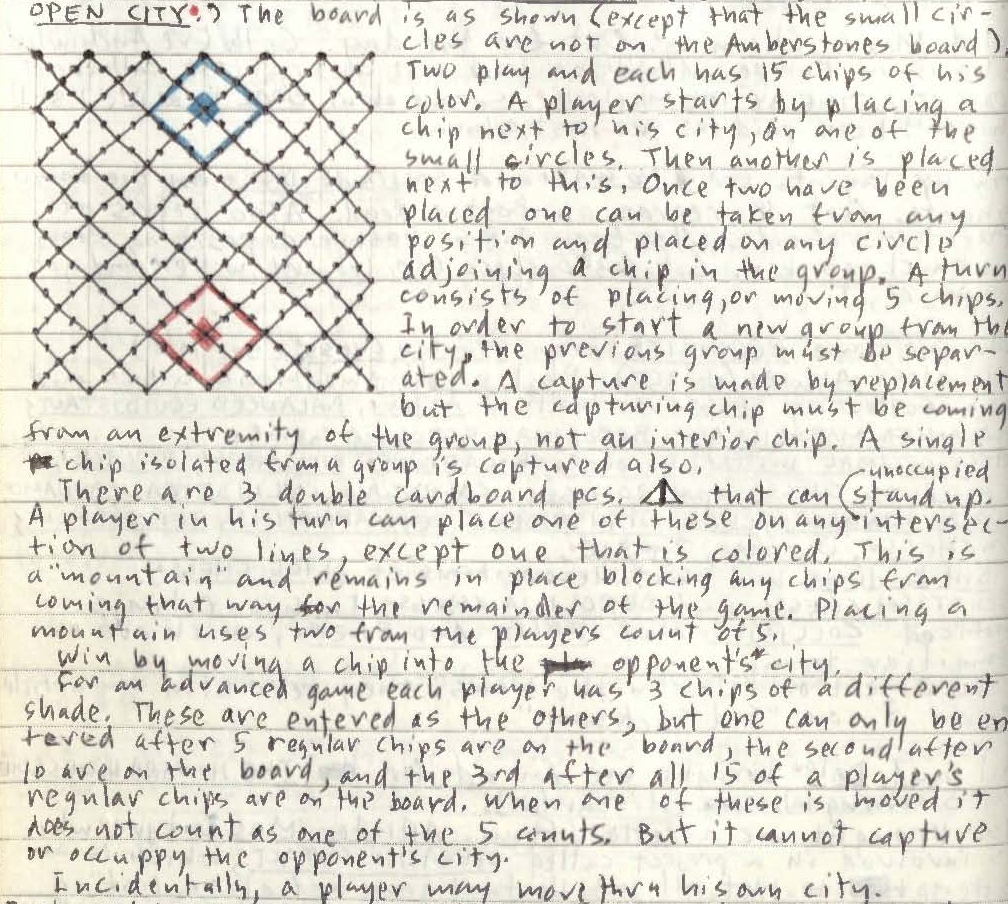 OPEN CITY:) The board is as shown (except that the small cir-
cles are not on the Amberstones board).
Two play and each has 15 chips of his
color. A player starts by placing a
chip next to his city, on one of the
small circles. Then another is placed
next to this. Once two have been
placed one can be taken from any
position and placed on any circle
adjoining a chip in the group. A turn
consists of placing, or moving 5 chips.
In order to start a new group from the
city, the previous group must be separ-
ated. A capture is made by replacement
but the capturing chip must be coming
from an extremity of the group, not an interior chip. A single
chip isolated from a group is captured also.
There are 3 double cardboard pcs. that can stand up.
unoccupied
A player in his turn can place one of these on any intersec-
tion of two lines, except one that is colored. This is
a "mountain" and remains in place blocking any chips from
coming that way for the remainder of the game. Placing a
mountain uses two from the players count of 5.
Win by moving a chip into the opponent's city.
For an advanced game each player has 3 chips of a different
shade. These are entered as the others, but one can only be en
tered after 5 regular chips are on the board, the second after
10 are on the board, and the 3rd after all 15 of a player's
regular chips are on the board. When one of these is moved it
does not count as one of the 5 counts. But it cannot capture
or occuppy the opponent's city.
Incidentally, a player may move thru his own city.